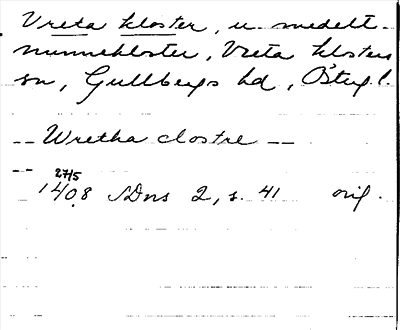 Vreta kloster, u. medelt.
nunnekloster, Vreta klosters
sn, Gullbergs hd, Östergl.
-- Wretha clostre --
--
27/5
1408 SDns 2, s. 41 orig.